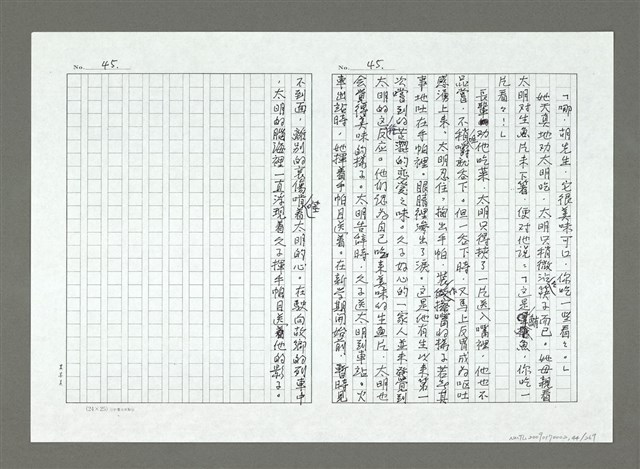 No. 45.
「哪，胡先生，它很美味可口，你吃一些看々。」
她天真地劝太明吃，太明只稍微沾筷子而已。她母親看
太明对生魚片未下箸，便对他说：「这是鯛魚，你吃一
片看々！」
長輩劝他吃菜，太明只得挾了一片送入嘴裡，他也不
品嘗，不稍嚼就吞下。但一吞下時，又馬上反胃成為嘔吐
感湧上来。太明忍住，掏出手帕，裝做擦嘴的樣子若無其
事地吐在手帕裡。眼睛裡滲出了淚。这是他有生以来第一
次嚐到的苦澀的恋爱之味。久子好心的一家人並未發覺到
太明的这反应。他们認為自己吃来美味的生魚片，太明也
会覺得美味的樣子。太明告辞時，久子送太明到車站。火
車出站時，她揮着手帕目送着。在新学期開始前，暫時見
No. 45.
不到面，離別的哀傷啃着太明的心。在駛向故鄉的列車中
，太明的腦海裡一直浮現着久子揮手帕目送着他的影子。
(24×25)